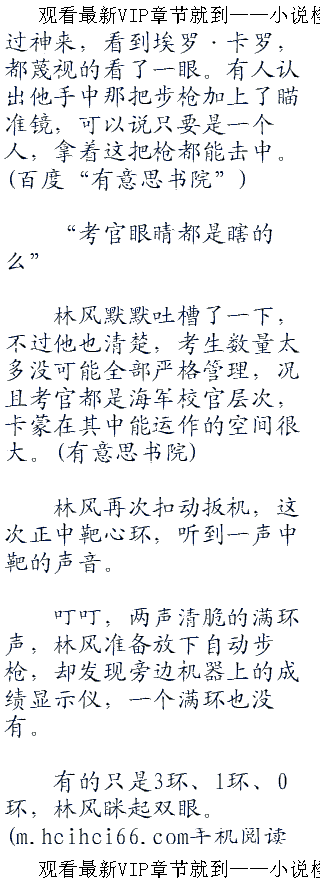 观看最新VIP章节就到——小说检
过神来，看到埃罗·卡罗，
都蔑视的看了一眼。有人认
出他手中那把步枪加上了瞄
准镜，可以说只要是一个
人，拿着这把枪都能击中。
(百度“有意思书院”)
“考官眼睛都是瞎的
么”
林风默默吐槽了一下，
不过他也清楚，考生数量太
多没可能全部严格管理，况
且考官都是海军校官层次，
卡蒙在其中能运作的空间很
大。(有意思书院)
林风再次扣动扳机，这
次正中靶心环，听到一声中
靶的声音。
叮叮，两声清脆的满环
声，林风准备放下自动步
枪，却发现旁边机器上的成
绩显示仪，一个满环也没
有。
有的只是3环、1环、0
环，林风眯起双眼。
(m.hcihci66.com手机阅读
观看最新VIP章节就到——小说检